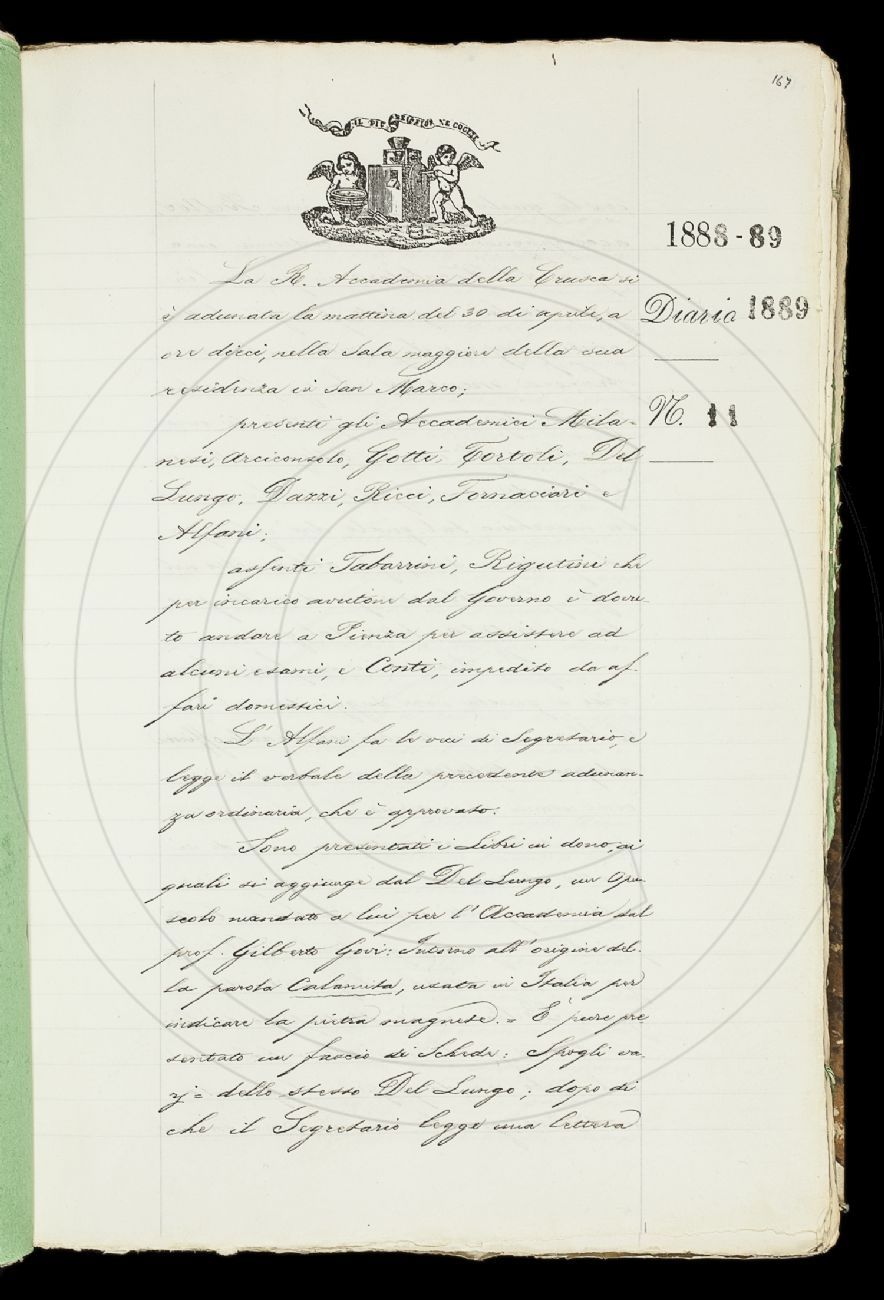 167
IL PIÙ BEL FIOR NE COGLIE
1888-89
Diario 1889
N. 11
La R. Accademia della Crusca si
è adunata la mattina del 30 di aprile, a
ore dieci, nella Sala maggiore della sua
residenza in San Marco;
presenti gli Accademici Mila-
nesi, Arciconsolo, Gotti, Tortoli, Del
Lungo, Dazzi, Ricci, Fornaciari e
Alfani;
assenti Tabarrini, Rigutini che
per incarico avutone dal Governo è dovu-
to andare a Pienza per assistere ad
alcuni esami, e Conti, impedito da af-
fari domestici.
L'Alfani fa le veci di Segretario, e
legge il verbale della precedente adunan-
za ordinaria, che è approvato.
Sono presentati i Libri in dono, ai
quali si aggiunge dal Del Lungo, un Opu-
scolo mandato a lui per l'Accademia dal
prof. Gilberto Govi: Intorno all'origine del-
la parola Calamita, usata in Italia per
indicare la pietra magnete. = È pure pre
sentato un fascio di Schede: Spogli va-
rj = dello stesso Del Lungo; dopo di
che il Segretario legge una lettera